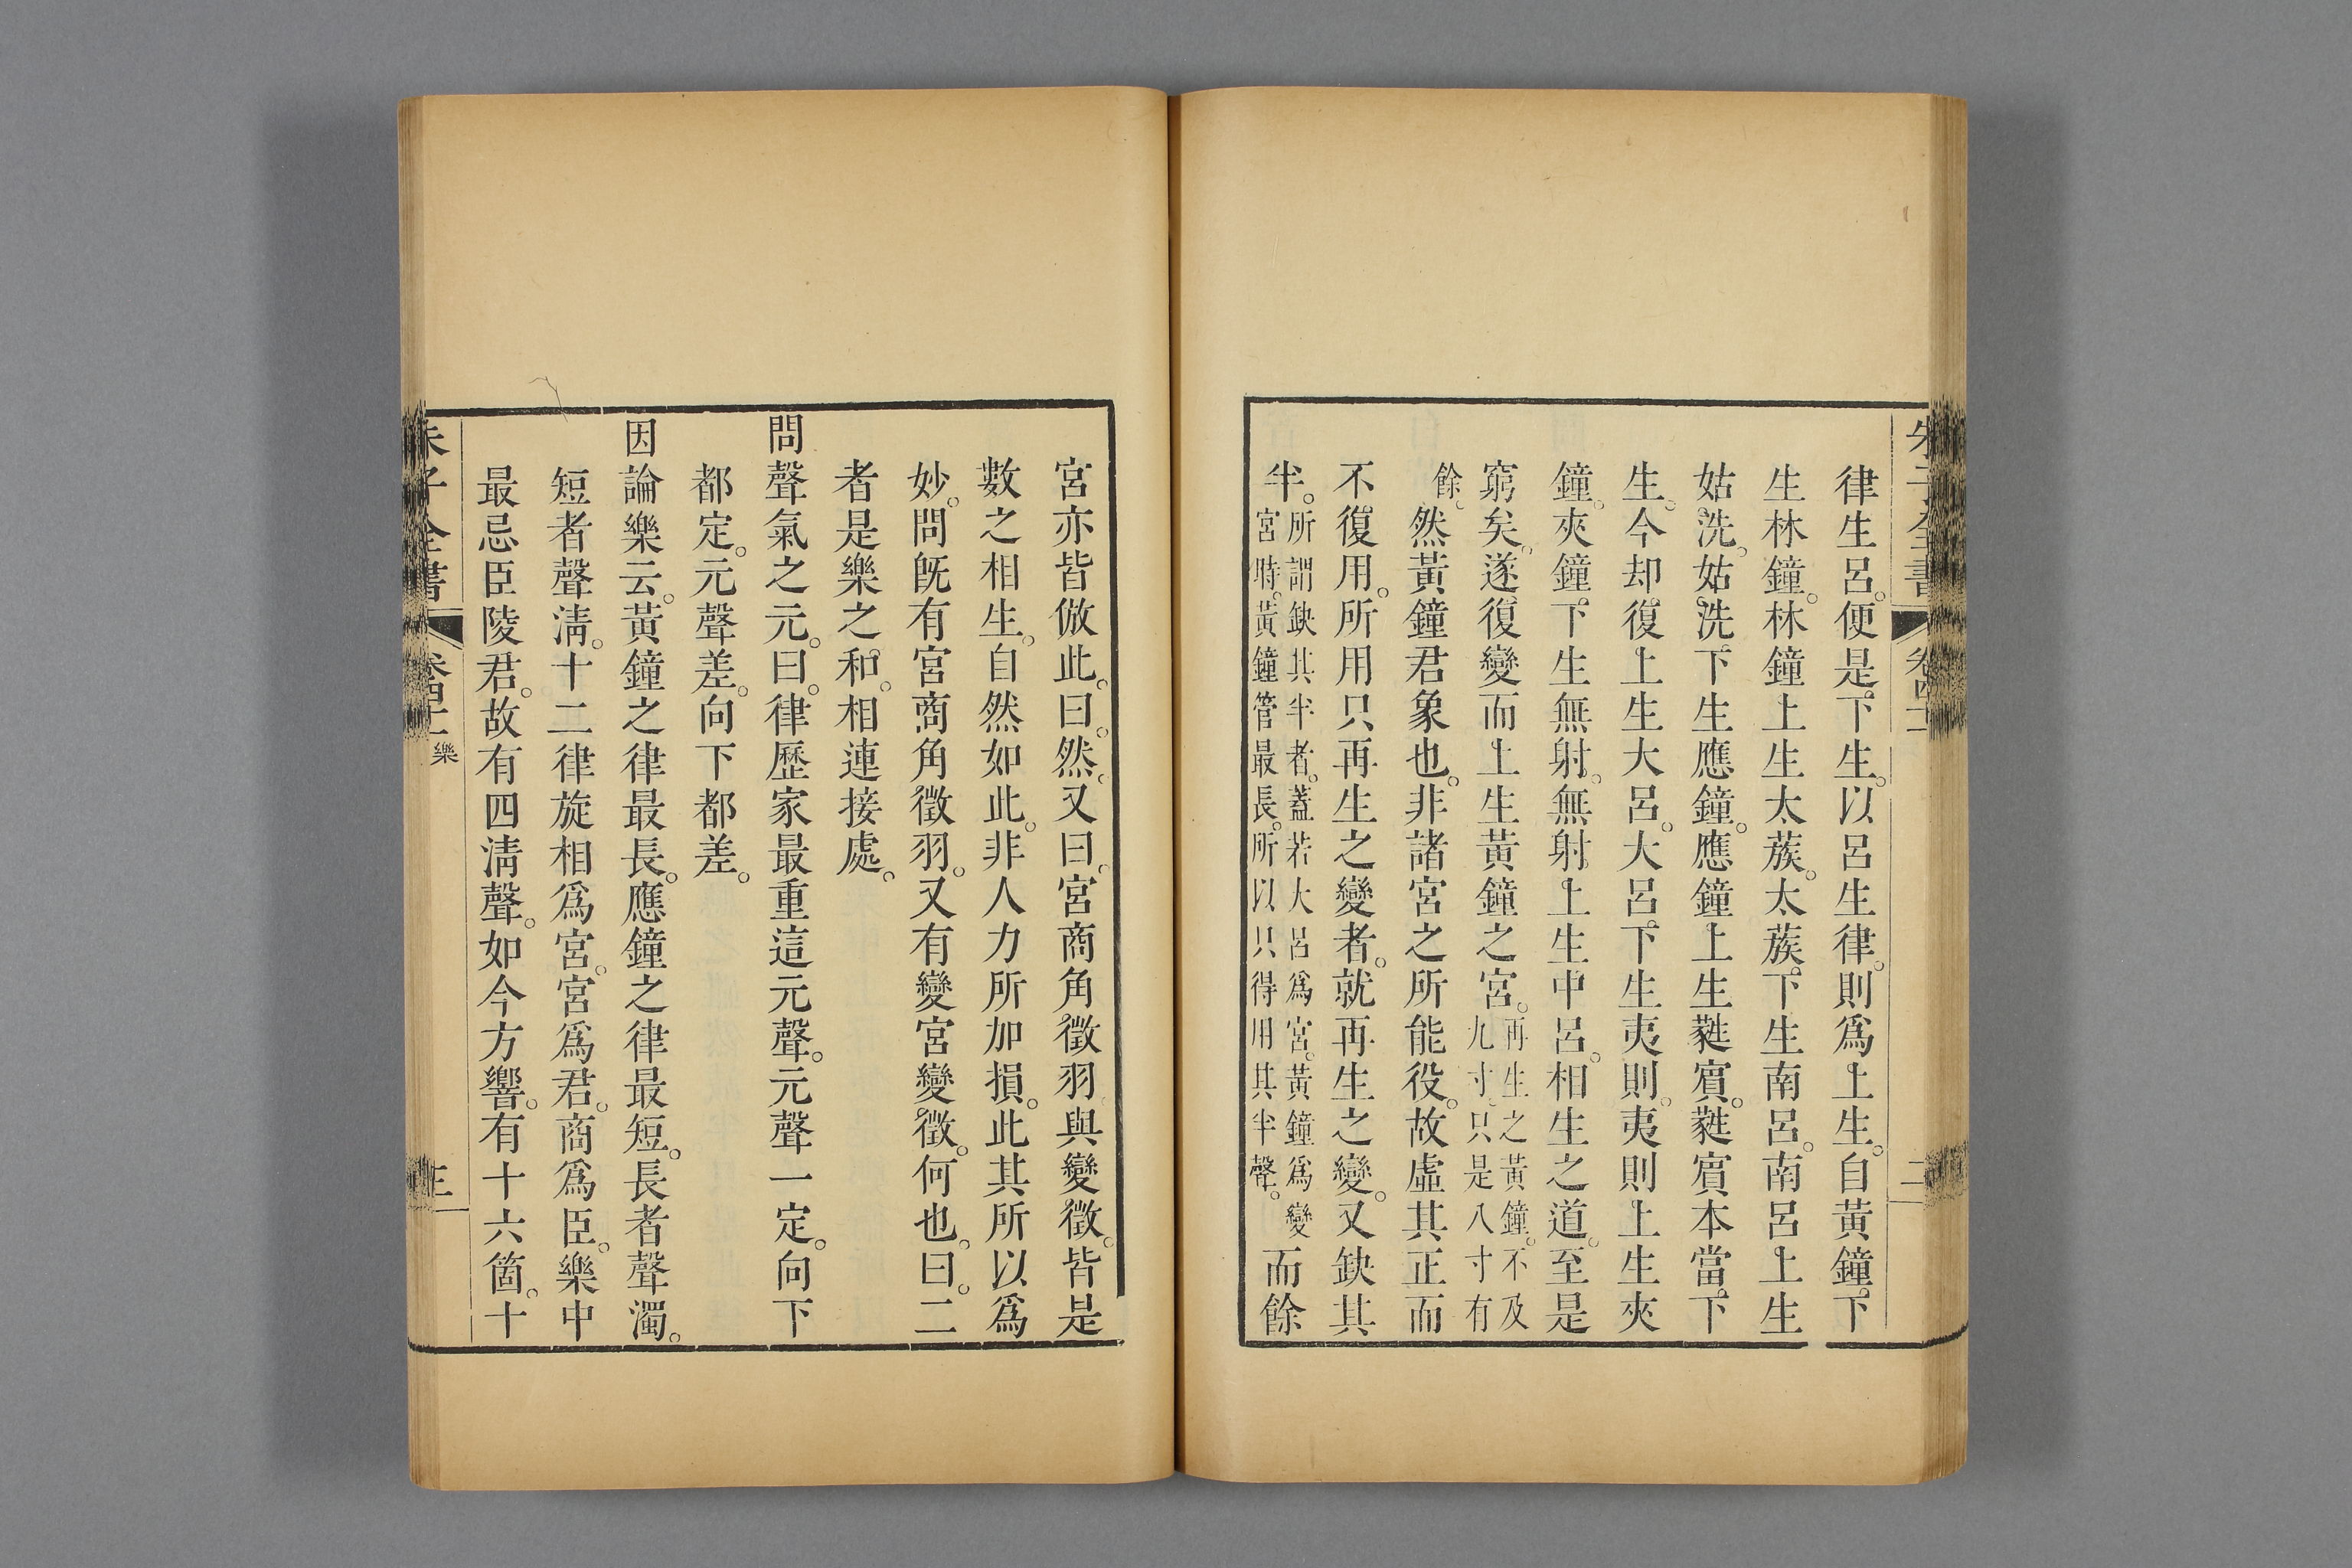 朱子全書 卷四十一 二
律生呂。便是下生。以呂生律。則爲上生。自黃鐘下
生林鐘。林鐘上生太蔟。太蔟下生南呂。南呂上生
姑洗。姑洗下生應鐘。應鐘上生蕤賓。蕤賓本當下
生。今却復上生大呂。大呂下生夷則。夷則上生夾
鐘。夾鐘下生無射。無射上生中呂。相生之道。至是
窮矣。遂復變而上生黃鐘之宮。再生之黃鐘。不及九寸。只是八寸有
餘。然黃鐘君象也。非諸宮之所能役。故虛其正而
不復用。所用只再生之變者。就再生之變。又缺其
半。所謂缺其半者。蓋若大呂爲宮。黃鐘爲變宮時。黃鐘管最長。所以只得用其半聲。而餘
宮亦皆倣此。曰。然。又曰。宮商角徵羽與變徵。皆是
數之相生。自然如此。非人力所加損。此其所以爲
妙。問旣有宮商角徵羽。又有變宮變徵。何也。曰。二
者是樂之和。相連接處。
問聲氣之元。曰。律歷家最重這元聲。元聲一定。向下
都定。元聲差。向下都差。
因論樂云。黃鐘之律最長。應鐘之律最短。長者聲濁。
短者聲淸。十二律旋相爲宮。宮爲君。商爲臣。樂中
最忌臣陵君。故有四淸聲。如今方響。有十六箇。十
朱子全書 卷四十一 樂 三